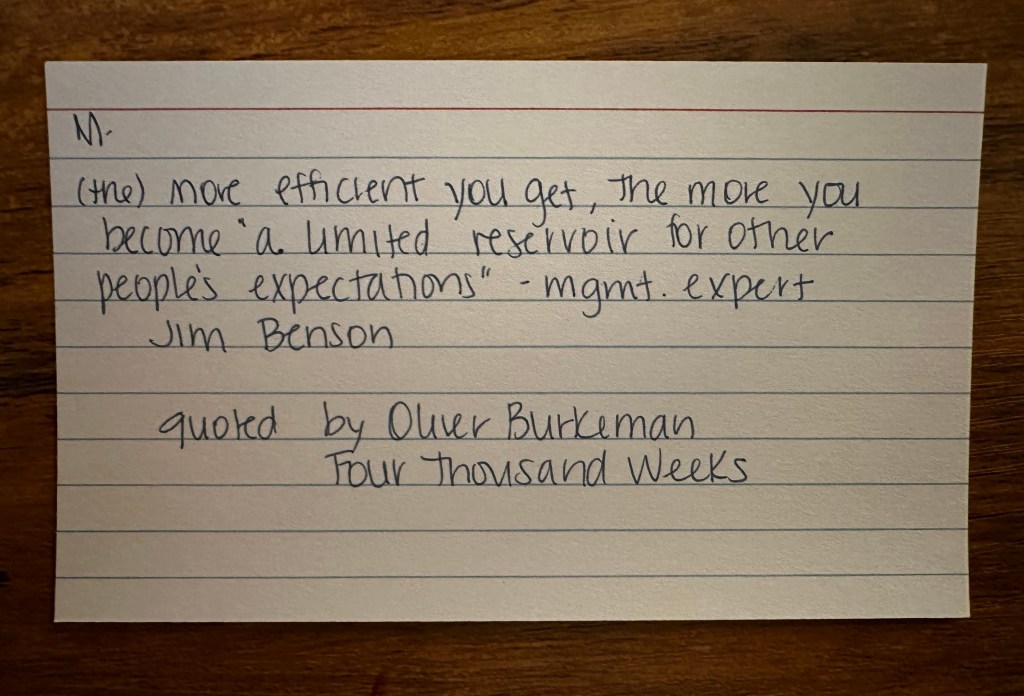 M.
(the) more efficient you get, the more you
become "a limited reservoir for other
people's expectations" - mgmt. expert
Jim Benson
quoted by Oliver Burkeman
Four Thousand Weeks